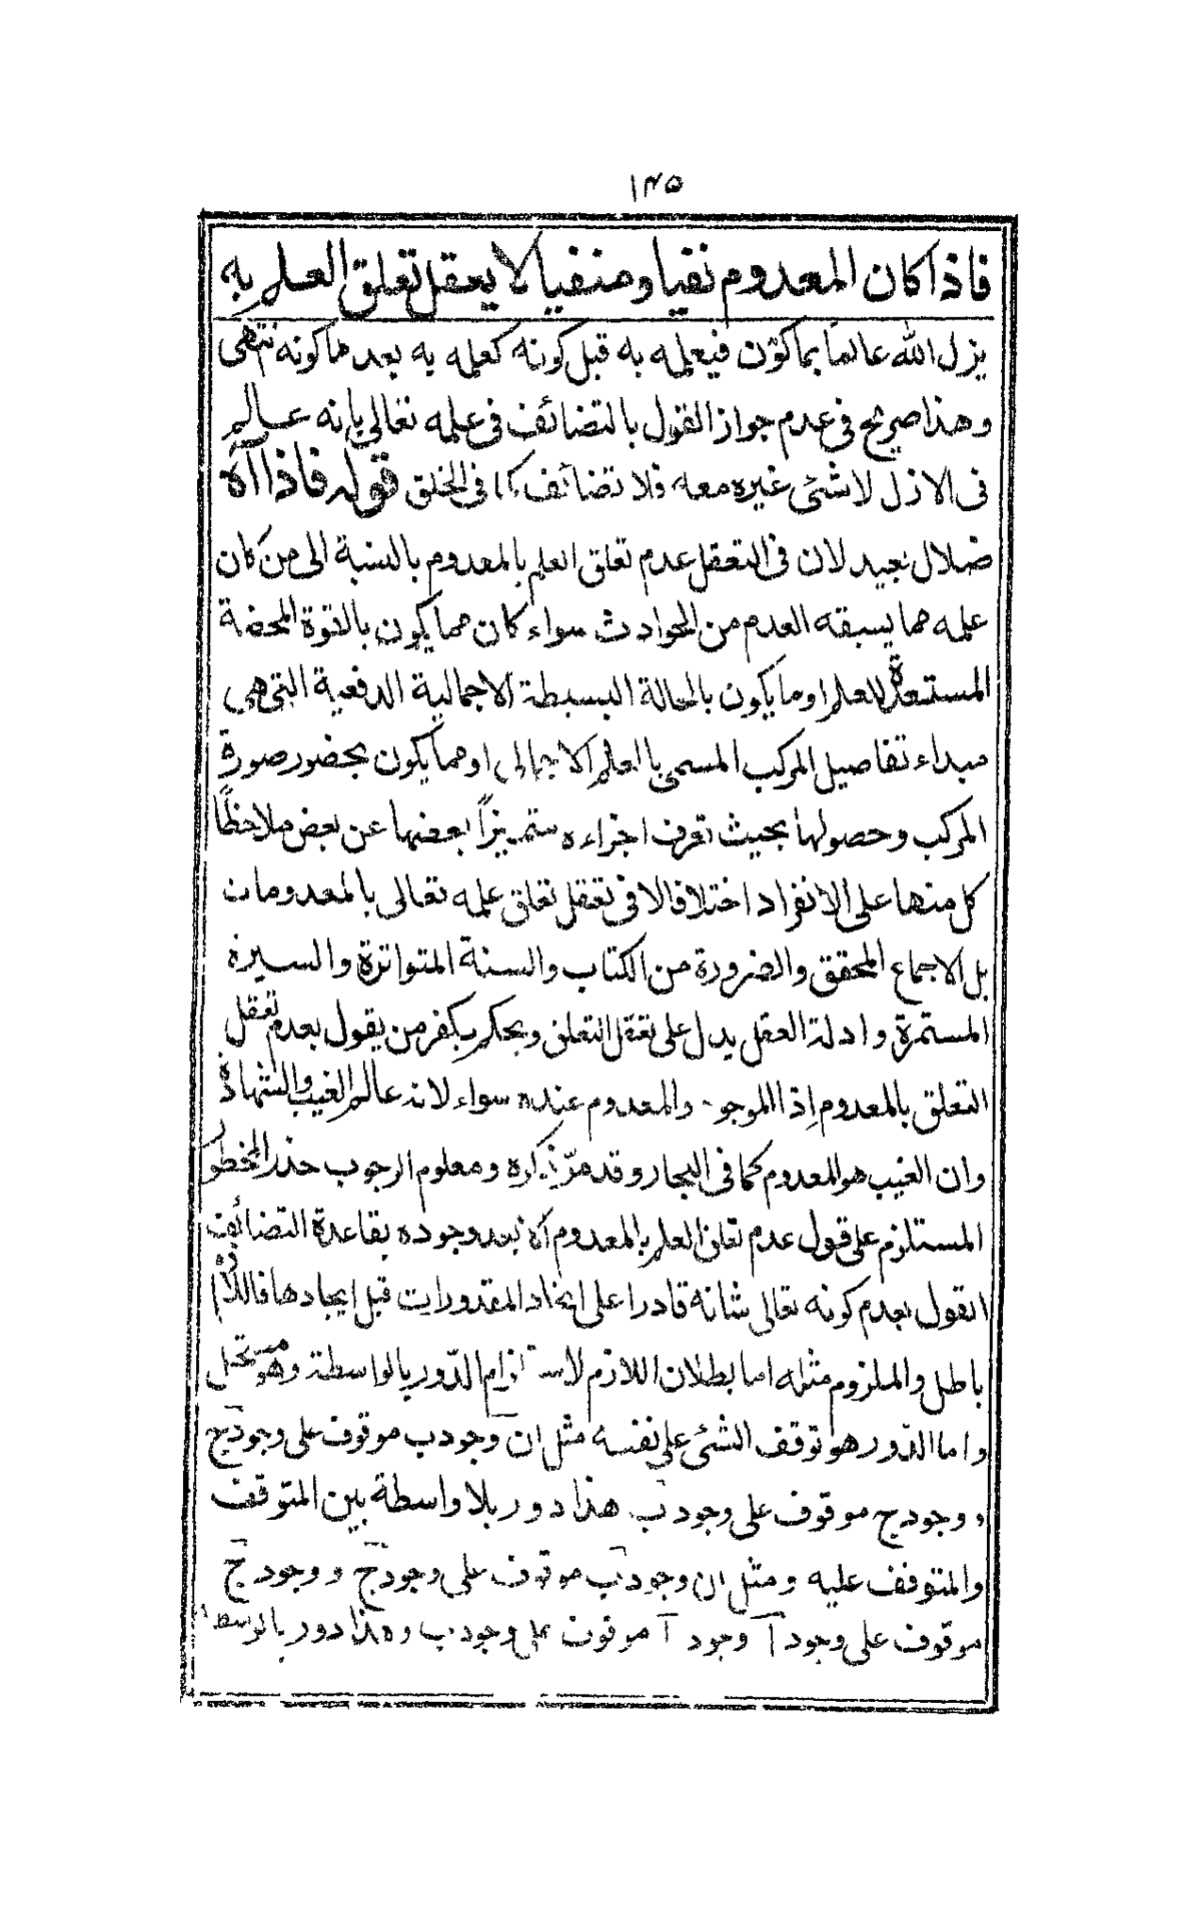 ۱۴۵
فاذا كان المعدوم نفيا ومنفيا لا يعقل تعلق العلم به
يزل الله عالما بما كون فيعلمه به قبل كونه كعلمه به بعد ما كونه انتهى
وهذا صريح فى عدم جواز القول بالتضائف فى علمه تعالى بانه عالم
فى الازل لا شئ غيره معه فلا تضائف كما فى الخلق قوله فاذا آه
ضلال بعيد لان فى التعقل عدم تعلق العلم بالمعدوم بالنسبة الى من كان
علمه مما يسبقه العدم من الحوادث سواء كان مما يكون بالقوة المحضة
المستعدة للعلم او ما يكون بالحالة البسيطة الاجمالية الدفعية التى هى
مبداء تفاصيل المركب المسمى بالعلم الاجمالى او مما يكون بحضور صورة
المركب وحصولها بحيث تعرف اجزاءه متميزاً بعضها عن بعض ملاحظاً
كل منها على الانفراد اختلافا لا فى تعقل تعلق علمه تعالى بالمعدومات
بل الاجماع المحقق والضرورة من الكتاب والسنة المتواترة والسيرة
المستمرة وادلة العقل يدل على تعقل التعلق ويحكم بكفر من يقول بعدم تعقل
التعلق بالمعدوم إذ الموجو والمعدوم عنده سواء لانه عالم الغيب والشهادة
وان الغيب هو المعدوم كما فى البحار وقد مرّ ذكره ومعلوم الوجوب حذر المحظور
المستلزم على قول عدم تعلق العلم بالمعدوم الا بعد وجوده بقاعدة التضائف
القول بعدم كونه تعالى شانه قادرا على ايجاد المقدورات قبل ايجادها فاللازم
باطل والملزوم مثله اما بطلان اللازم لاستلزام الدّور بالواسطة وهو مستحيل
واما الدّور هو توقف الشئ على نفسه مثل ان وجود ب موقوف على وجود ج
و وجود ج موقوف على وجود ب هذا دور بلا واسطة بين المتوقف
والمتوقف عليه ومثل ان وجود ب موقوف على وجود ج و وجود ج
موقوف على وجود آ وجود آ موقوف على وجود ب وهذا دور بالوسط